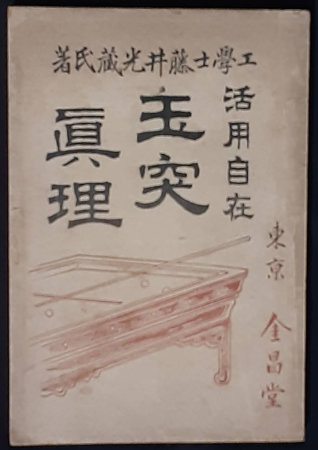 工學士藤井光藏氏著
活用自在
玉突
眞理
東京 金昌堂